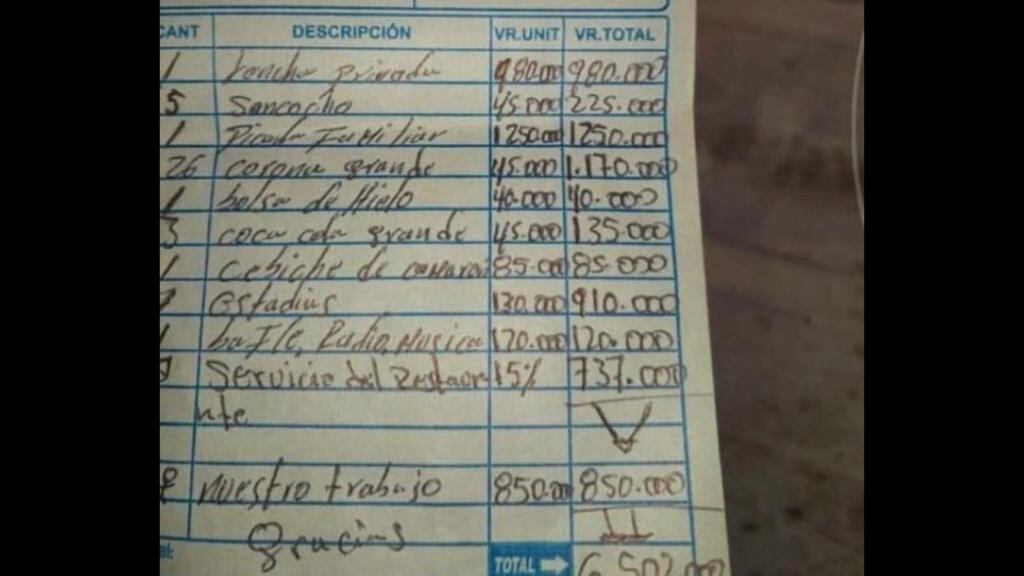 CANT DESCRIPCIÓN VR.UNIT VR.TOTAL
1 Loncha privada 980.000 980.000
5 Sancocho 45.000 225.000
1 Picada Familiar 1250.000 1250.000
26 corona grande 45.000 1.170.000
1 bolsa de Hielo 40.000 40.000
3 coca cola grande 45.000 135.000
1 Cebiche de 85.000 85.000
estadias 130.000 910.000
1 bafle, Radio, Musica 120.000 120.000
Servicio del Restaur 15% 737.000
nte
nuestro trabajo 850.000 850.000
Gracias
TOTAL 6.502.000